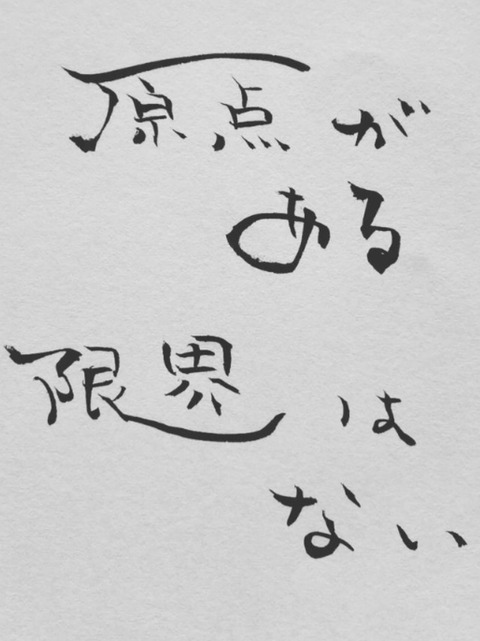 原点が
ある
限界は
ない